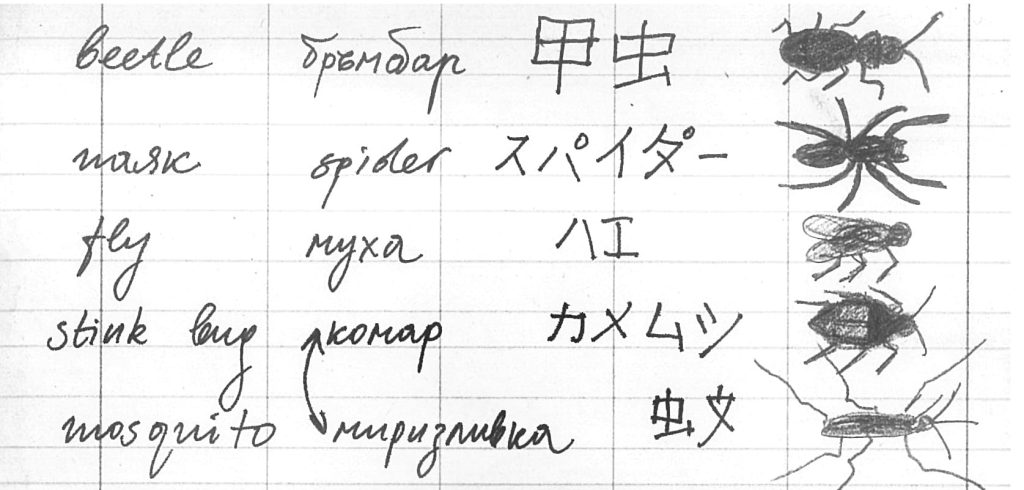 beetle бръмбар 甲虫
паяк spider スパイダー
fly муха ハエ
stink bug комар カメムツ
mosquito миризливка 蚊